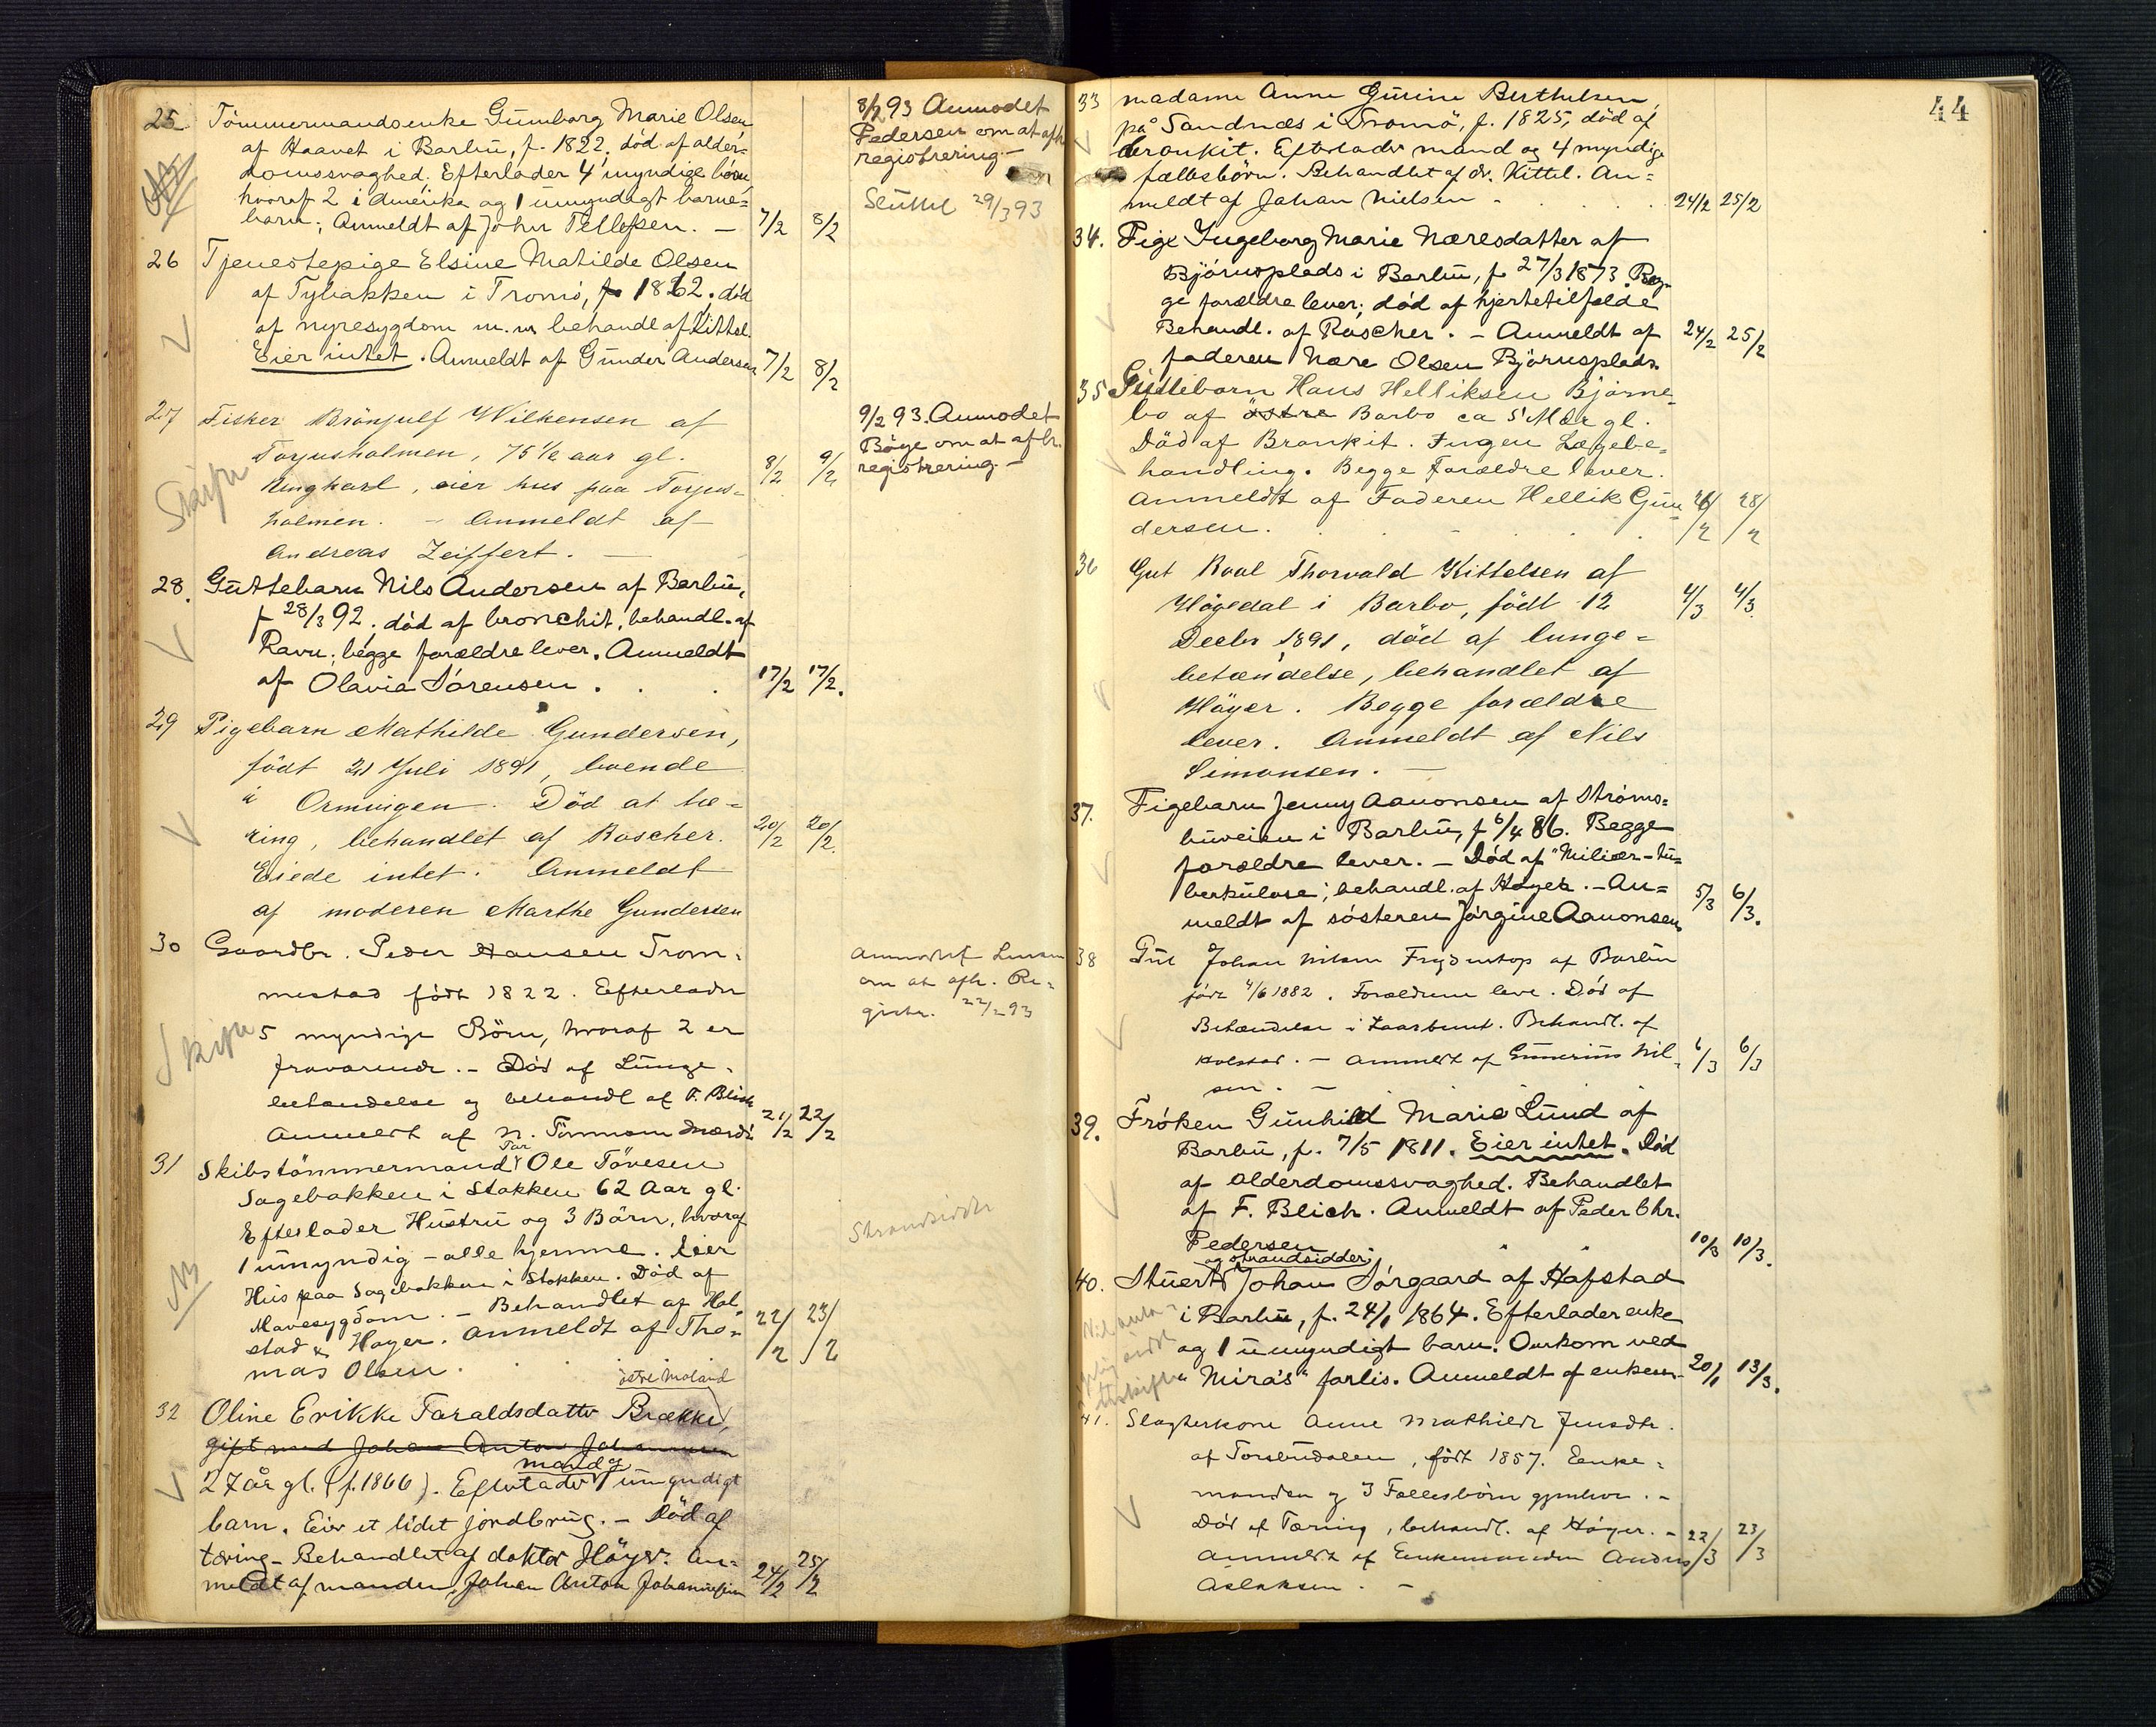 25 Tömmermandsenke Gunborg Marie Olsen
af Haavet i Barbu, f. 1822, död af alder-
domssvaghed. Efterlader 4 myndige börn,
hvoraf 2 i Amerika og 1 umyndigt barne-
barn; Anmeldt af John Tellefsen. — 7/2 8/2
8/2 93 Anmodet
Pedersen om at afh
registrering. —
Sluttet 29/3 93
26 Tjenestepige Elsine Matilde Olsen
af Tybakken i Tromö, f. 1862, död
af nyresygdom m.m behandl af Kittel.
Eier intet. Anmeldt af Gunder Andersen 7/2 8/2
27 Fisker Brönjulf Wilhensen af
Torjusholmen, 75 1/2 aar gl.
Ungkarl, eier hus paa Torjus-
holmen. — Anmeldt af
Andreas Zeiffert. — 8/2 9/2
Skifte
9/2 93. Anmodet
Böge om at afh.
registrering. —
28. Guttebarn Nils Andersen af Barbu,
f 28/3 92, död af bronchit, behandl. af
Ravn; begge forældre lever. Anmeldt
af Olavia Sörensen. 17/2 17/2.
29 Pigebarn Mathilde Gundersen,
födt 21 Juli 1891, boende
i Ormungen. Död at tæ-
ring, behandlet af Roscher. 20/2 20/2.
Eiede intet. Anmeldt
af moderen Marthe Gundersen
30 Gaardbr. Peder Hansen Trom-
mestad födt 1822. Efterlader
5 myndige Börn, hvoraf 2 er
fraværende. — Död af Lunge-
betændelse og behandl af F. Blich
Anmeldt af N. Tömmem 21/2 22/2
Skifte
Anmodet Lensm
om at afh. Re-
gistr. 22/2 93
31 Skibstömmermand Ole Tövesen
Sagebakken i Stokken 62 Aar gl.
Efterlader Hustru og 3 Börn, hvoraf
1 umyndig — alle hjemme. Eier
Hus paa Sagebakken i Stokken. Död af
Mavesygdom. — Behandlet af Hol-
stad & Høyer. Anmeldt af Tho-
mas Olsen. 22/2 23/2
Strandsidder
östre Moland
32 Oline Erikke Taraldsdatter Brække,
gift med Johan Anton Johannesen
mand og
27 år gl. (f. 1866). Efterlader 1 umyndigt
barn. Eier et lidet jordbrug. — Död af
tæring — Behandlet af doktor Höyer. An-
meldt af manden, Johan Anton Johannesen 24/2 25/2
44
33 madame Anne Gurine Berthelsen,
på Sandnæs i Tromö, f. 1825, död af
bronkit. Efterlader mand og 4 myndige
fællesbörn. Behandlet af dr. Kittel. An-
meldt af Johan Nielsen — 24/2 25/2
34. Pige Ingeborg Marie Næresdatter af
Björnsplads i Barbu, f 27/3 1873. Beg-
ge forældre lever; död af hjertetilfælde
Behandl. af Roscher. — Anmeldt af 24/2 25/2
faderen Nære Olsen Björnsplads.
35 Guttebarn Hans Helliksen Bjorne
bo af östre Barbo ca 5 Mdr gl.
Död af Bronkit. Ingen Lægebe-
handling. Begge Forældre lever.
Anmeldt af Faderen Hellik Gun
dersen. 28/2
36 Gut Roal Thorvald Kittelsen af
Högedal i Barbo, födt 12 4/3 4/3.
Decbr 1891, död af lunge-
betændelse, behandlet af
Höyer. Begge forældre
lever. Anmeldt af Nils
Simonsen. —
37. Pigebarn Jenny Aanonsen af Ströms-
buveien i Barbu, f 6/4 86. Begge
forældre lever. — Död af "Miliær-tu-
berkulose; behandl. af Høyer. — An-
meldt af sösteren Jörgine Aanonsen. 5/3 6/3.
38 Gut Johan Nilsen Frydentop af Barbu
födt 4/6 1882. Forældrene leve. Död af
Betændelse i Laarbenet. Behandl. af
Holstad. — Anmeldt af Gunerius Nil-
sen. — 6/3 6/3
39. Fröken Gunhild Marie Lund af
Barbu, f. 7/5 1811. Eier intet. Död
af Alderdomssvaghed. Behandlet
af F. Blich. Anmeldt af Peder Chr.
Pedersen 10/3 10/3.
og strandsidder
40. Stuert Johan Sörgaard af Hafstad
i Barbu, f. 24/1 1864. Efterlader enke
og 1 umyndigt barn. Omkom ved
"Mira's" forlis. Anmeldt af enken 20/1 13/3.
41. Slagterkone Anne Mathilde Jensdtr.
af Torsbudalen, födt 1857. Enke-
manden og 3 Fællesbörn gjenlever. —
Död af Tæring, behandl. af Höyer. — 22/3 23/3
Anmeldt af Enkemanden Anders
Aslaksen. —